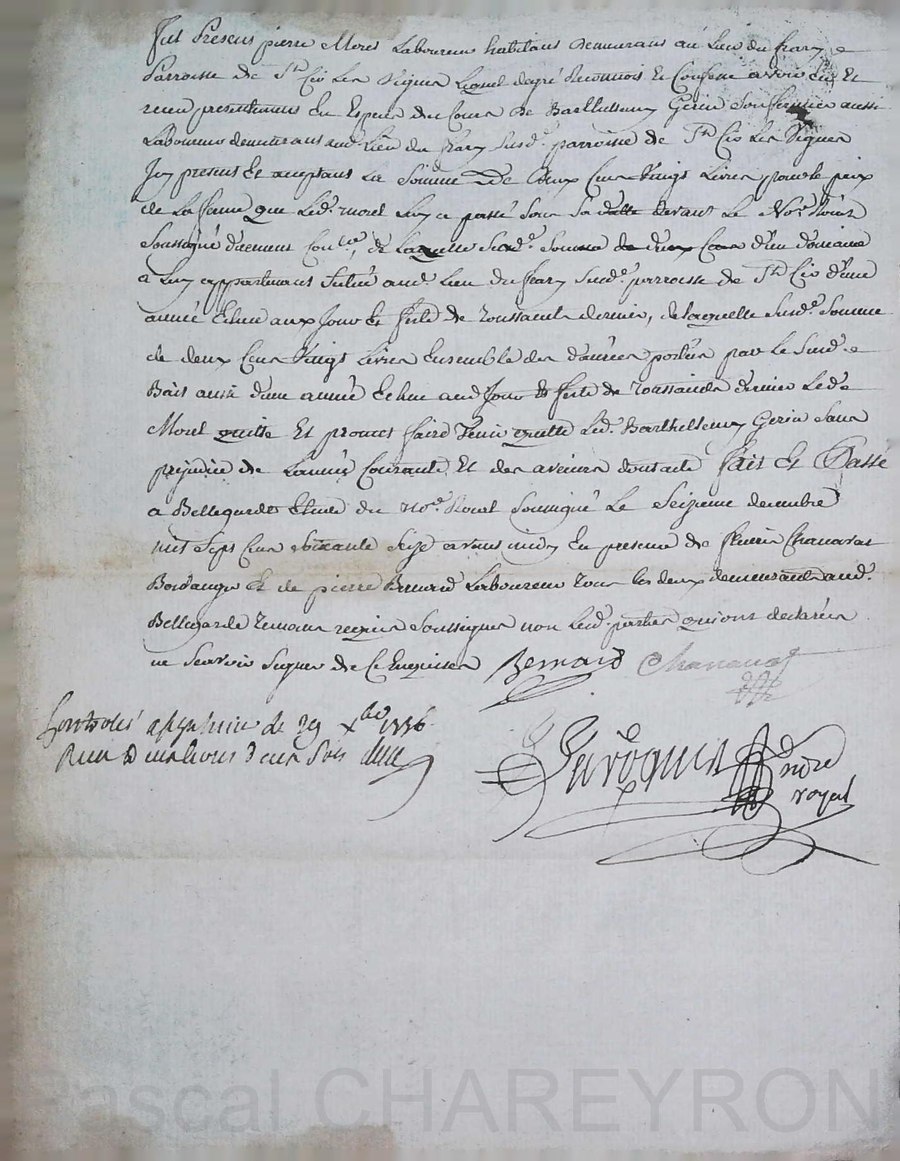 Fut Present pierre Morel Laboureur habitant demeurant au Lieu du frary
Parroisse de St Cir Les Vignes Lequel degré Reconnoit Et Confesse avoir Eu Et
receu presentement En Espece du Cours de Barthellemy Gerin Son fermier aussi
Laboureur demeurant aud. Lieu du frary Susd. parroisse de St Cir Les Vignes
Icy present Et aceptant La Somme De deux Cens Vingt Livres pour le prix
de La ferme que Led. morel Luy a passé Sous Sa datte devant Le Nore
Soussigné duement Conlle, de Laquelle Susd. Somme de deux Cens d'un Domaine
a Luy appartenant Situé aud. Lieu du frary Susd. parroisse de St Cir d'une
année Echue aux Jour Et feste de Toussaints dernier, de laquelle Susd. Somme
de deux Cens Vingt Livres Ensemble des danrées portées par le Susd.
Bail aussi d'une année Echue aud Jour Et feste de Toussaints dernier Led.
Morel quitte Et promet faire Tenir quitte Led. Barthellemy Gerin Sans
prejudice de Lannée Courante Et des avenirs dont acte fait Et Passé
a Bellegarde Etude du No.re Royal Soussigné Le Seizieme decembre
mil Sept Cens Soixante Seize avant midy En presence de fleury Chanavat
Boulanger Et de pierre Bernard Laboureur Tous les deux demeurants aud.
Bellegarde Temoins requis Soussignes non Led. parties qui ont declarées
ne Scavoir Signer de Ce Enquises Bernard Chanavat
Controlé a le 29 Xbre 1776
Reçu Sols
nore
royal
Pascal CHAREYRON